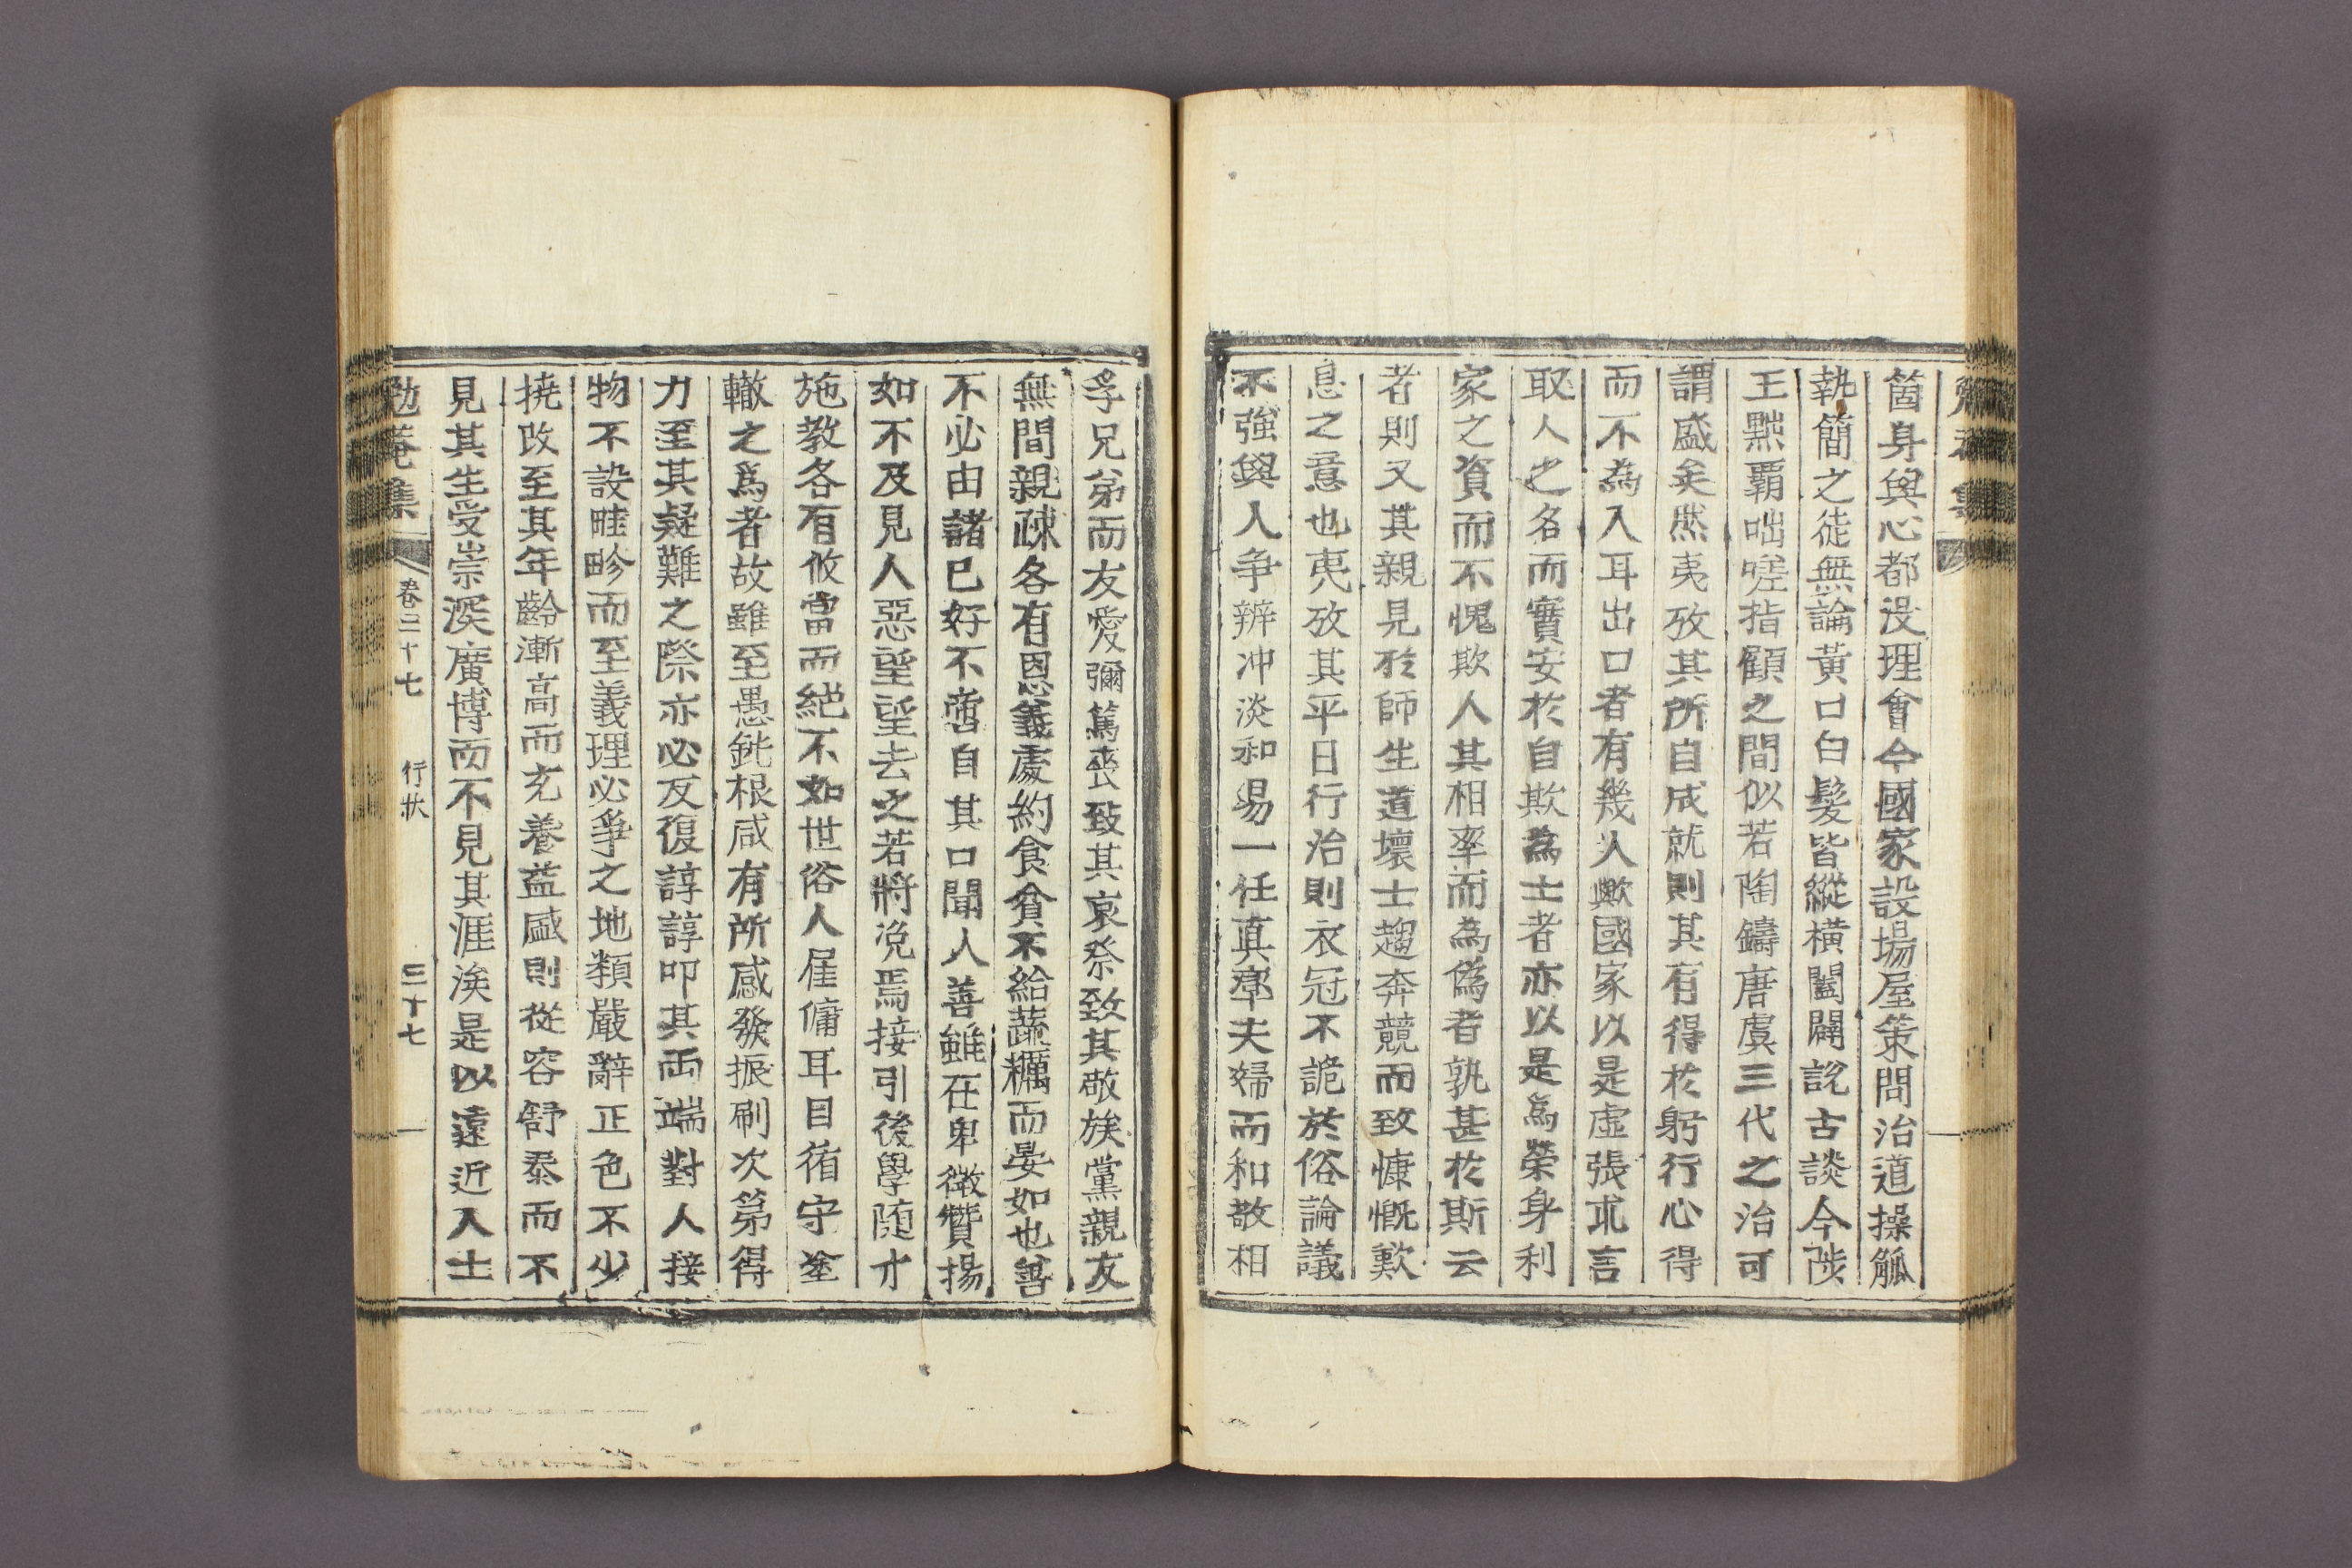 箇身與心都沒理會今國家設場屋策問治道操觚
執簡之徒無論黃口白髮皆縱橫闔闢說古談今陟
王黜覇咄嗟指顧之間似若陶鑄唐虞三代之治可
謂盛矣然夷攷其所自成就則其有得於躬行心得
而不為入耳出口者有幾人歟國家以是虛張求言
取人之名而實安於自欺為士者亦以是為榮身利
家之資而不愧欺人其相率而為偽者孰甚於斯云
者則又其親見於師生道壞士趨奔競而致慷慨歎
息之意也夷攷其平日行治則衣冠不詭於俗論議
不強與人爭辨冲淡和易一任真率夫婦而和敬相
孚兄弟而友愛彌篤喪致其哀祭致其敬族黨親友
無間親疎各有恩義處約食貧不給蔬糲而晏如也善
不必由諸已好不啻自其口聞人善雖在卑微贊揚
如不及見人惡望望去之若將浼焉接引後學随才
施教各有攸當而絕不如世俗人雇傭耳目循守塗
轍之爲者故雖至愚鈍根咸有所感發振刷次第得
力至其疑難之際亦必反復諄諄叩其兩端對人接
物不設畦畛而至義理必爭之地類嚴辭正色不少
撓改至其年齡漸高而充養益盛則從容舒泰而不
見其生受崇深廣博而不見其涯涘是以遠近人士
勉菴集 卷二十七 行狀 三十七